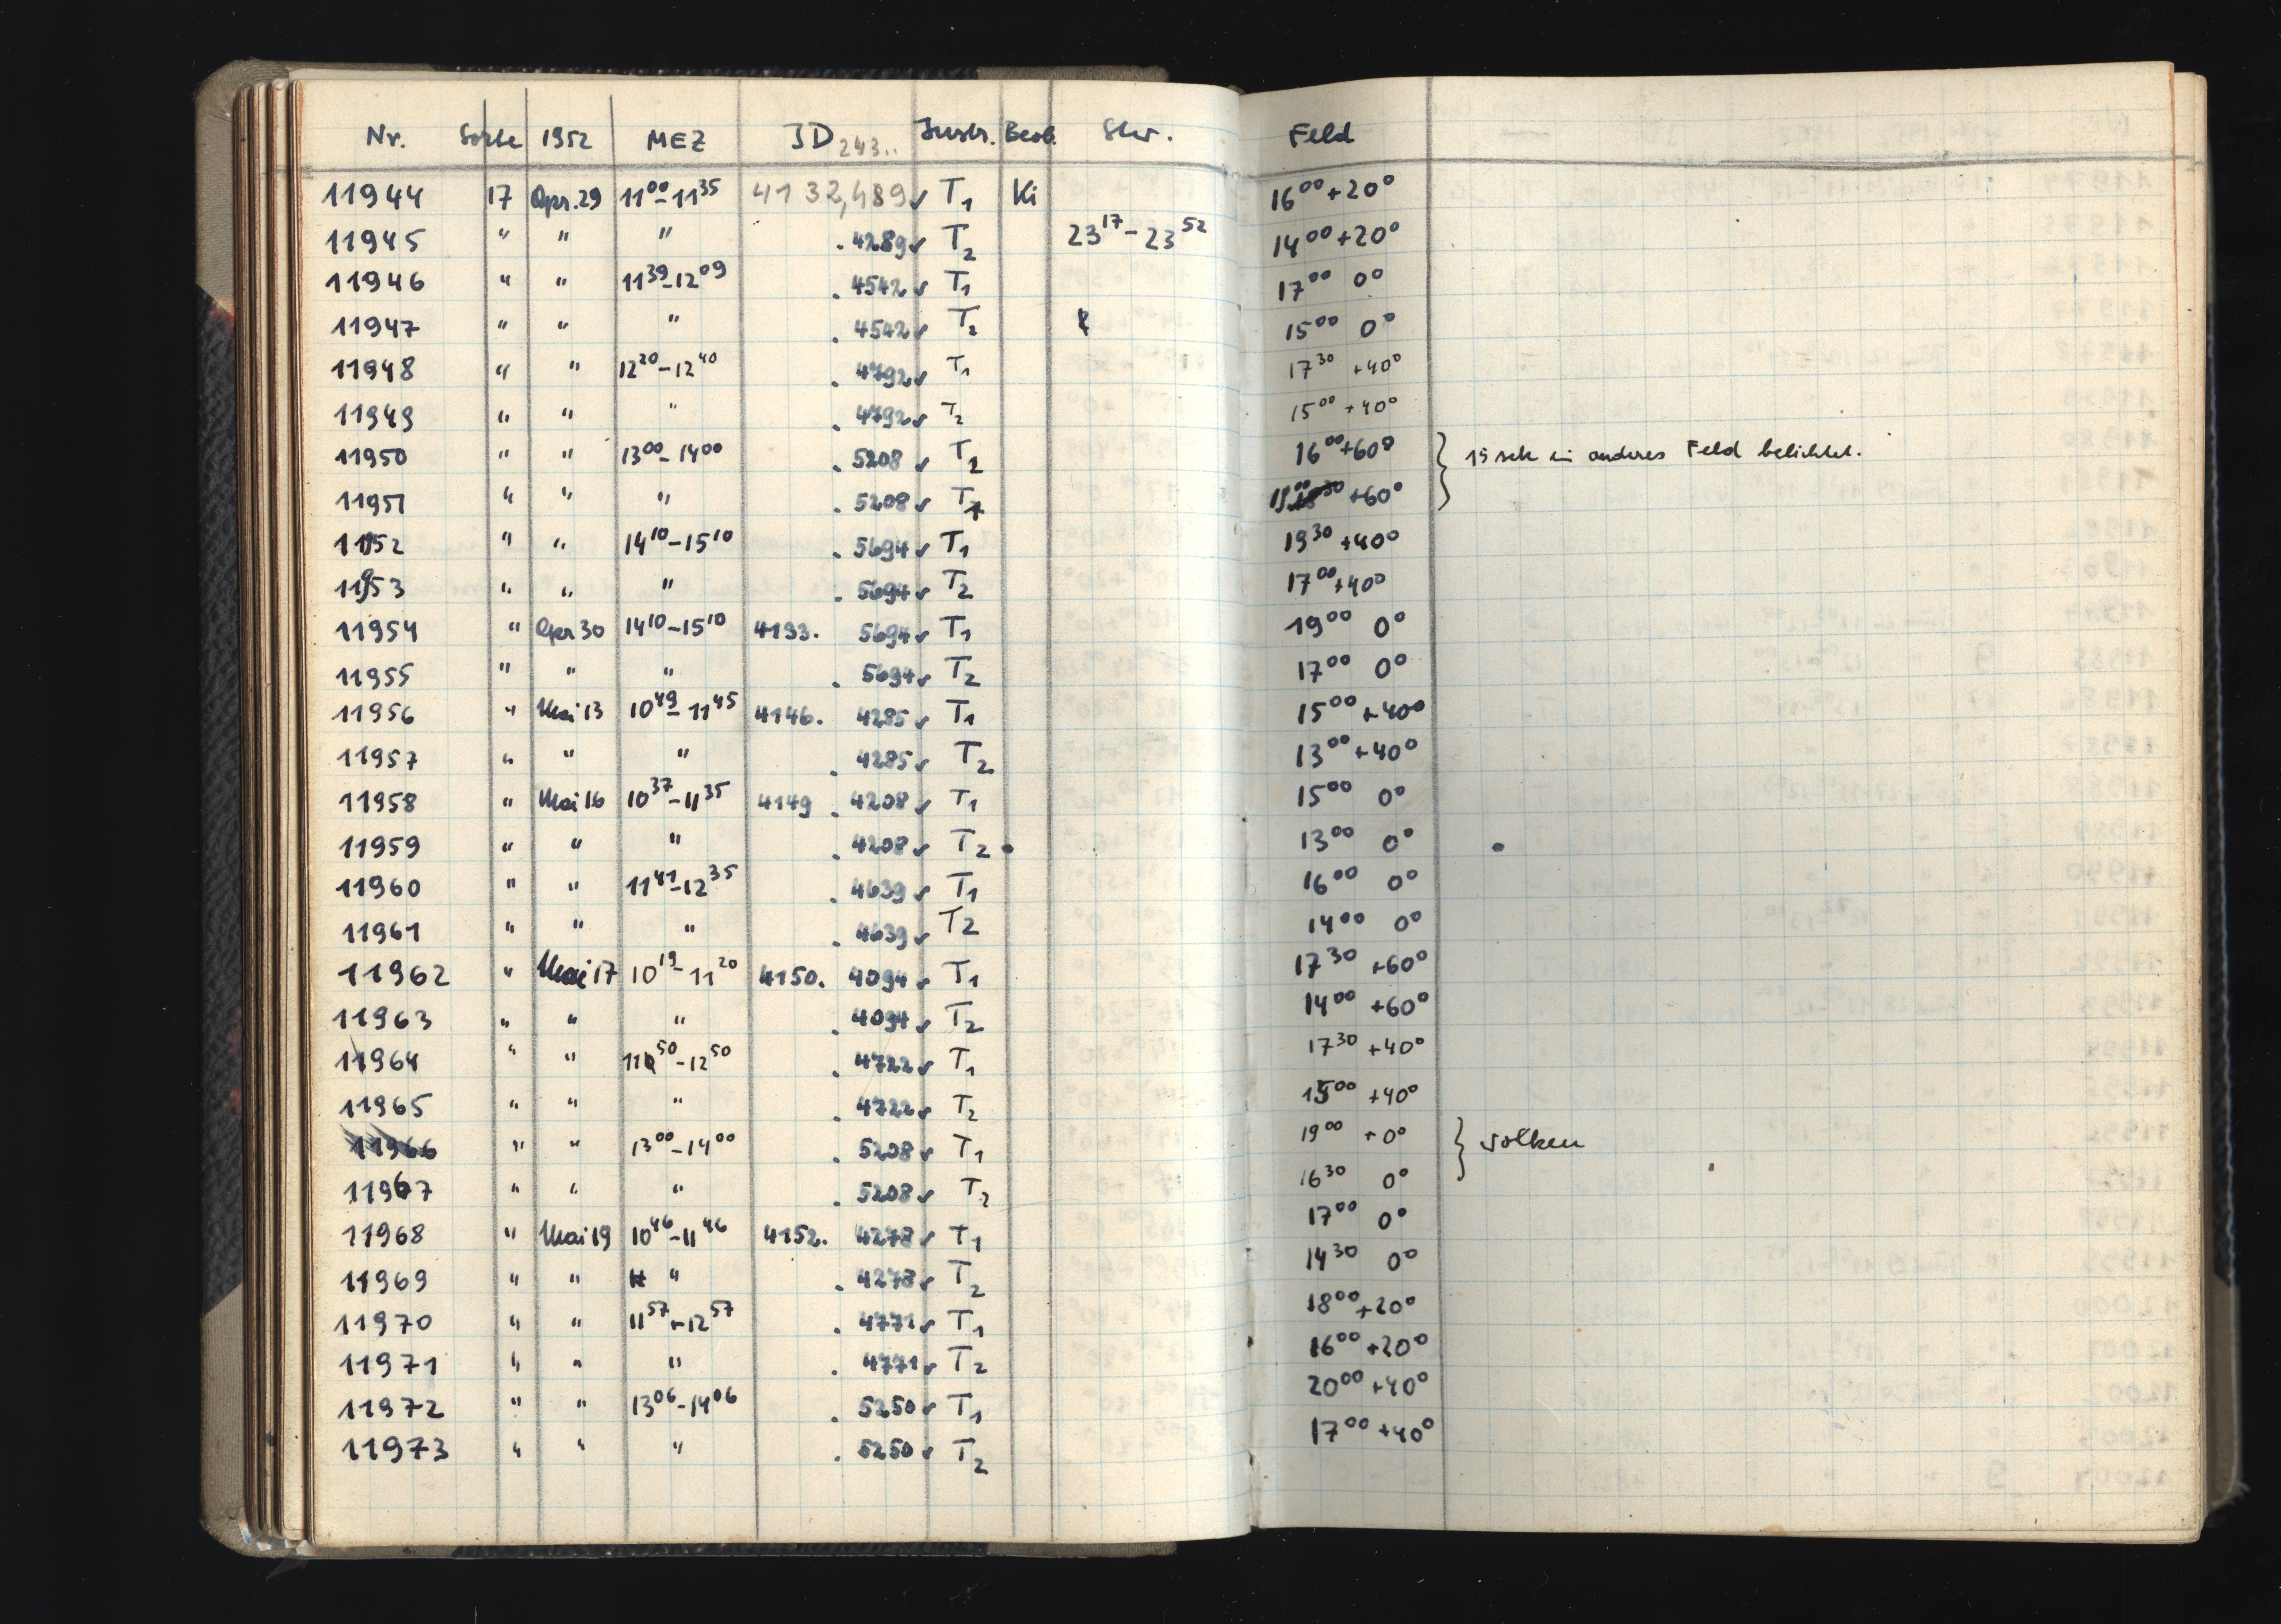 Nr. Sorte 1952 MEZ JD 243.. Instr. Beob. Skr. Feld
11944 17 Apr. 29 11⁰⁰-11³⁵ 4132,489 ✓ T₁ Ki 16⁰⁰ +20°
11945 " " " . 4289 ✓ T₂ 23¹⁷-23⁵² 14⁰⁰ +20°
11946 " " 11³⁹-12⁰⁹ . 4542 ✓ T₁ 17⁰⁰ 0°
11947 " " " . 4542 ✓ T₂ 15⁰⁰ 0°
11948 " " 12²⁰-12⁴⁰ . 4792 ✓ T₁ 17³⁰ +40°
11949 " " " . 4792 ✓ T₂ 15⁰⁰ +40°
11950 " " 13⁰⁰-14⁰⁰ . 5208 ✓ T₂ 16⁰⁰ +60° } 15 sek in anderes Feld belichtet.
11951 " " " . 5208 ✓ T₁ 19⁰⁰ +60°
11952 " " 14¹⁰-15¹⁰ . 5694 ✓ T₁ 19³⁰ +40°
11953 " " " . 5694 ✓ T₂ 17⁰⁰ +40°
11954 " Apr 30 14¹⁰-15¹⁰ 4133. 5694 ✓ T₁ 19⁰⁰ 0°
11955 " " " . 5694 ✓ T₂ 17⁰⁰ 0°
11956 " Mai 13 10⁴⁹-11⁴⁵ 4146. 4285 ✓ T₁ 15⁰⁰ +40°
11957 " " " . 4285 ✓ T₂ 13⁰⁰ +40°
11958 " Mai 16 10³⁷-11³⁵ 4149 . 4208 ✓ T₁ 15⁰⁰ 0°
11959 " " " . 4208 ✓ T₂ 13⁰⁰ 0°
11960 " " 11⁴¹-12³⁵ . 4639 ✓ T₁ 16⁰⁰ 0°
11961 " " " . 4639 ✓ T₂ 14⁰⁰ 0°
11962 " Mai 17 10¹⁹-11²⁰ 4150. 4094 ✓ T₁ 17³⁰ +60°
11963 " " " . 4094 ✓ T₂ 14⁰⁰ +60°
11964 " " 11⁵⁰-12⁵⁰ . 4722 ✓ T₁ 17³⁰ +40°
11965 " " " . 4722 ✓ T₂ 15⁰⁰ +40°
11966 " " 13⁰⁰-14⁰⁰ . 5208 ✓ T₁ 19⁰⁰ +0° } Wolken
11967 " " " . 5208 ✓ T₂ 16³⁰ 0°
11968 " Mai 19 10⁴⁶-11⁴⁶ 4152. 4278 ✓ T₁ 17⁰⁰ 0°
11969 " " " . 4278 ✓ T₂ 14³⁰ 0°
11970 " " 11⁵⁷-12⁵⁷ . 4771 ✓ T₁ 18⁰⁰ +20°
11971 " " " . 4771 ✓ T₂ 16⁰⁰ +20°
11972 " " 13⁰⁶-14⁰⁶ . 5250 ✓ T₁ 20⁰⁰ +40°
11973 " " " . 5250 ✓ T₂ 17⁰⁰ +40°